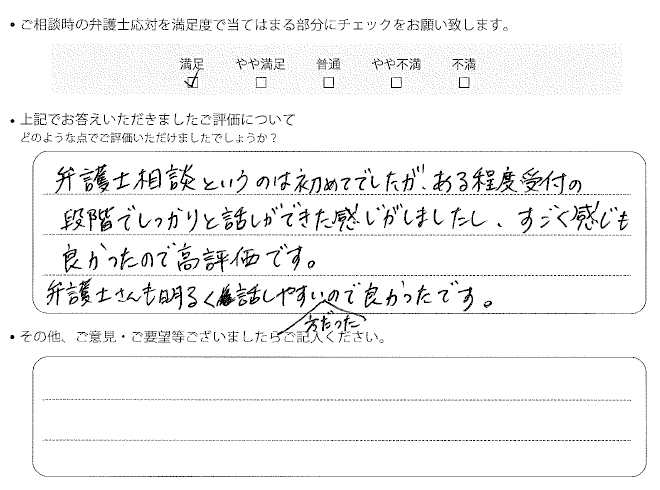 • ご相談時の弁護士応対を満足度で当てはまる部分にチェックをお願い致します。
満足 やや満足 普通 やや不満 不満
☑ □ □ □ □
• 上記でお答えいただきましたご評価について
どのような点でご評価いただけましたでしょうか？
弁護士相談というのは初めてでしたが、ある程度受付の
段階でしっかりと話しができた感じがしましたし、すごく感じも
良かったので高評価です。
弁護士さんも明るく話しやすい方だったので良かったです。
• その他、ご意見・ご要望等ございましたらご記入ください。